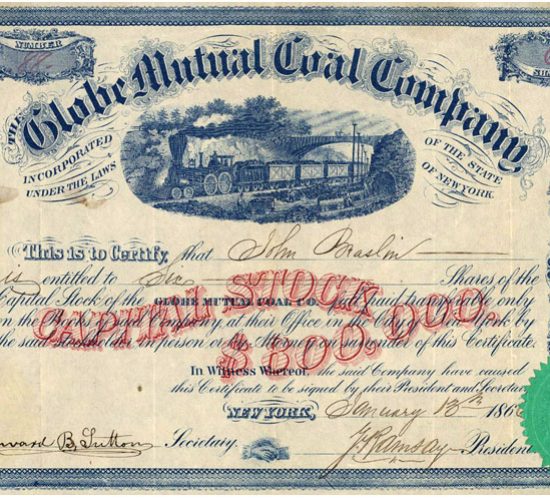 NUMBER
66
THE
Globe Mutual Coal Company
INCORPORATED
UNDER THE LAWS
OF THE STATE
OF NEW YORK.
This is to Certify, that John
is entitled to Six Shares of the
Capital Stock of the GLOBE MUTUAL COAL CO.
CAPITAL STOCK
on the Books of said Company, at their Office in the City of New York by
the said Stockholder in person or by Attorney on surrender of this Certificate.
$600,000.
In Witness Whereof, the said Company have caused
this Certificate to be signed by their President and Secretary
NEW YORK, January 13th 186
B. Sutton Secretary. J Ramsay President